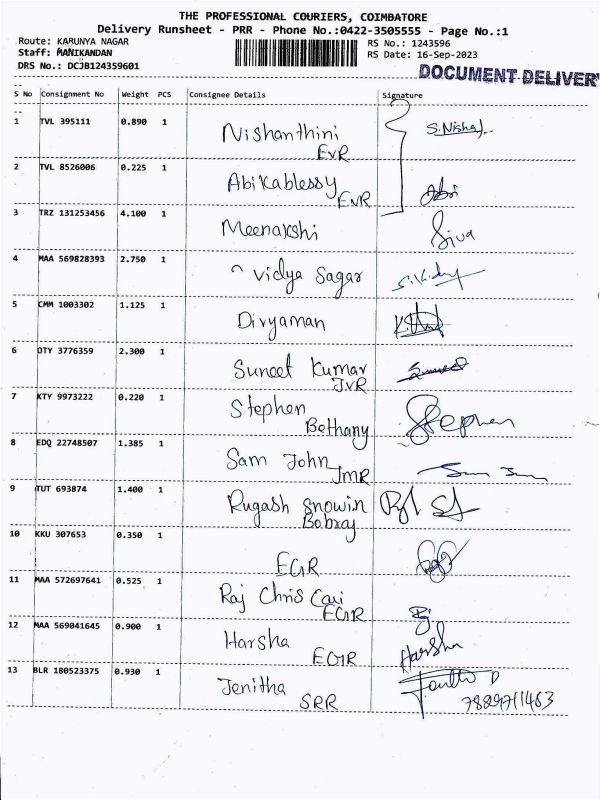 THE PROFESSIONAL COURIERS, COIMBATORE
Delivery Runsheet - PRR - Phone No.:0422-3505555 - Page No.:1
Route: KARUNYA NAGAR
RS No.: 1243596
Staff: MANIKANDAN
RS Date: 16-Sep-2023
DRS No.: DCJB124359601
DOCUMENT DELIVER
S No Consignment No Weight PCS Consignee Details Signature
1 TVL 395111 0.890 1 Nishanthini S.Nisha
EVR
2 TVL 8526006 0.225 1 Abikablessy Abi
EVR
3 TRZ 131253456 4.100 1 Meenakshi Siva
4 MAA 569828393 2.750 1 Vidya Sagar
5 CMM 1003302 1.125 1 Divyaman
6 OTY 3776359 2.300 1 Suneet Kumar
JVR
7 KTY 9973222 0.220 1 Stephen Stephen
Bethany
8 EDQ 22748507 1.385 1 Sam John
JMR
9 TUT 693874 1.400 1 Rugash Snowin
Bobray
10 KKU 307653 0.350 1
EGR
11 MAA 572697641 0.525 1 Raj Chris Cari Rj
EGR
12 MAA 569041645 0.900 1 Harsha Harsha
EGR
13 BLR 180523375 0.930 1 Jenitha
SRR 7889711463